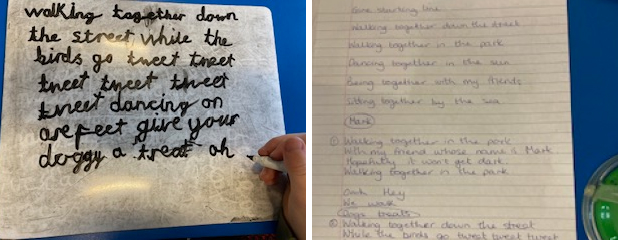 walking together down
the street while the
birds go tweet tweet
tweet tweet tweet
tweet dancing on
are feet give your
doggy a treat oh
Some starting line
Walking together down the street
Walking together in the park
Dancing together in the sun
Being together with my friends
Sitting together by the sea
Mark
① Walking together in the park
With my friend whose name is Mark
Hopefully it won't get dark
Walking together in the park
Ooh Hey
We walk
Dogs treats
② Walking together down the street
While the birds go tweet tweet tweet